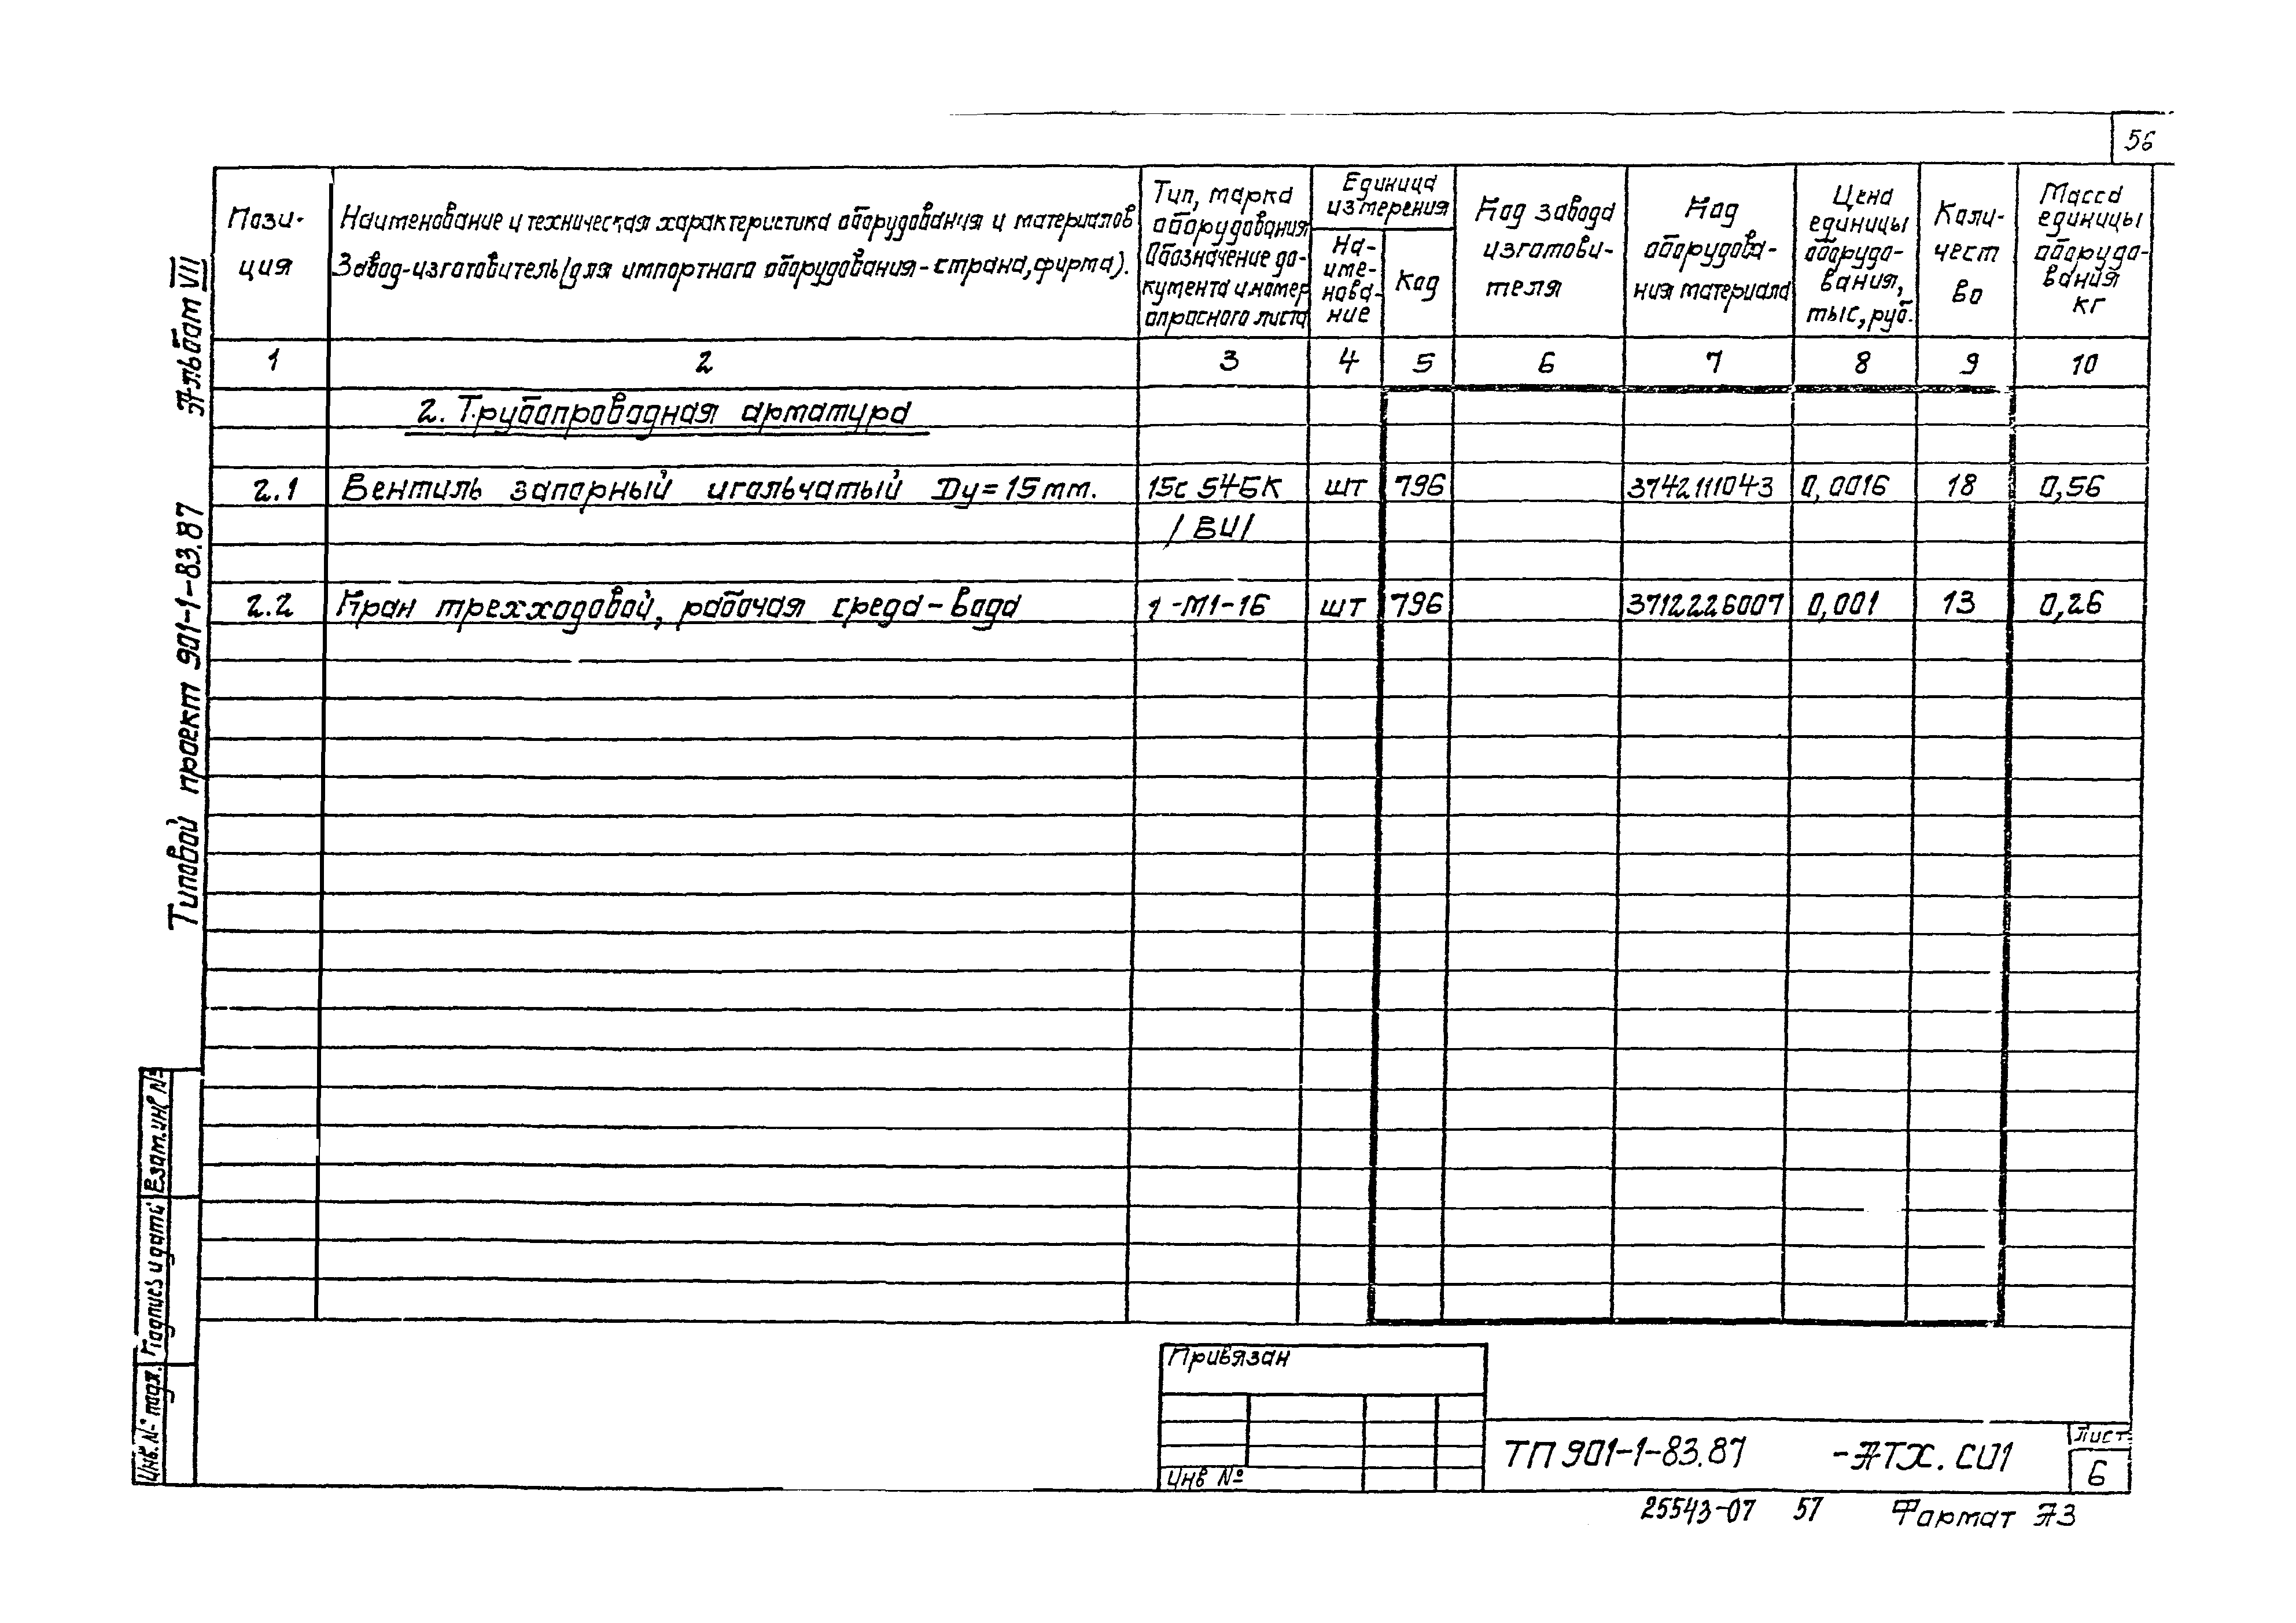 56
Пози-
ция
Наименование и техническая характеристика оборудования и материалов
Завод-изготовитель (для импортного оборудования - страна, фирма).
Тип, марка
оборудования
Обозначение до-
кумента и номер
опросного листа
Единица
измерения
На-
име-
нова-
ние
Код
Код завода
изготови-
теля
Код
оборудова-
ния материала
Цена
единицы
оборудо-
вания,
тыс, руб.
Коли-
чест
во
Масса
единицы
оборудо-
вания
кг
1 2 3 4 5 6 7 8 9 10
2. Трубопроводная арматура
2.1 Вентиль запорный игольчатый Dу=15мм. 15с 54БК шт 796 3742111043 0,0016 18 0,56
/ВИ/
2.2 Кран трехходовой, рабочая среда-вода 1-М1-16 шт 796 3712226007 0,001 13 0,26
Альбом VII
Типовой проект 901-1-83.87
Взам.инв №
Подпись и дата
Инв.№ подл.
Привязан
Инв №
ТП 901-1-83.87 -АТХ.СО1
Лист
6
25543-07 57 Формат А3